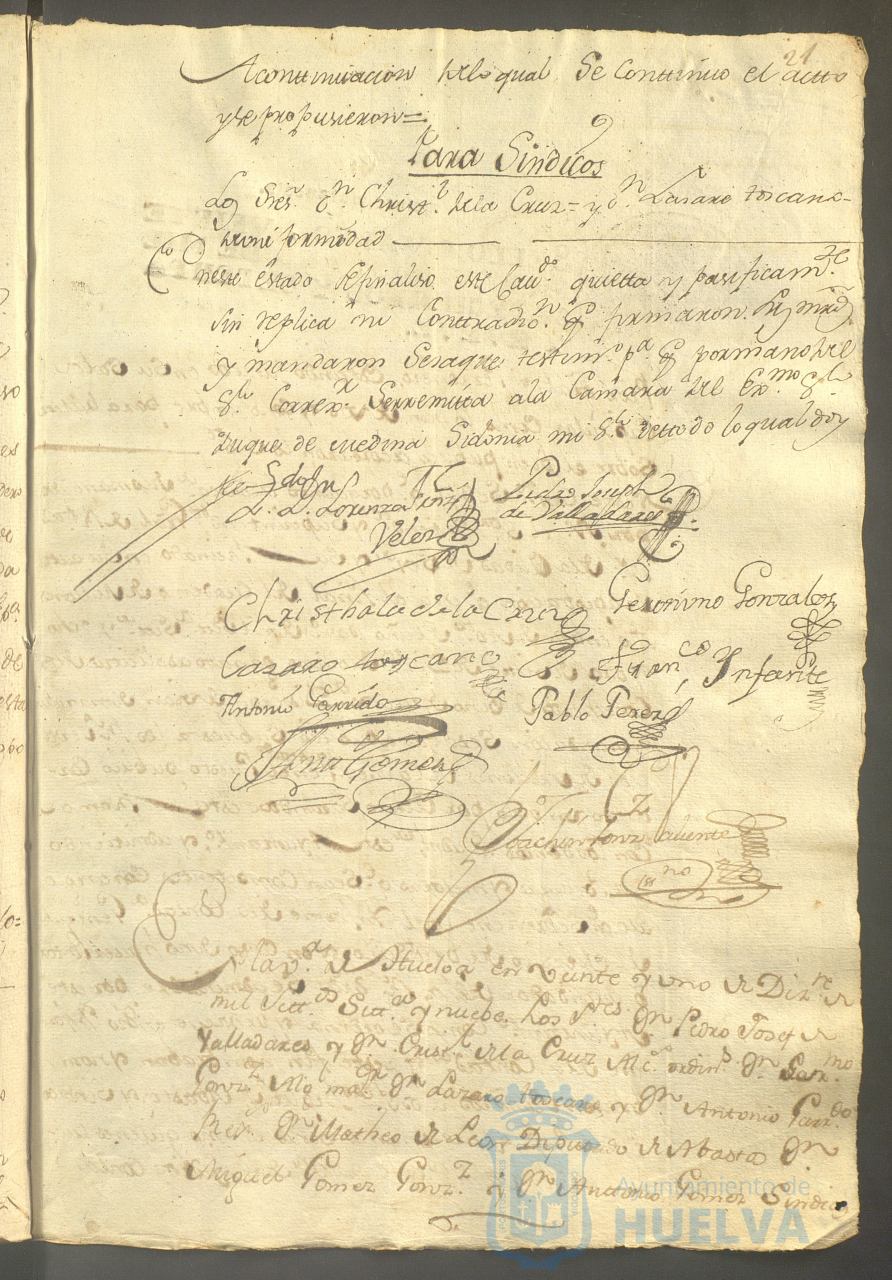 21
A conttinuacion de lo qual Se Conttinuo el actto
y se propusieron=
Para Sindicos
Los Sres. Dn. Christl. de la Cruz= y Dn. Lasaro toscano-
de uniformidad
En este estado se finaliso este Cavdo. quietta y pasificamte.
sin replica ni Conttradin. qe firmaron. Ls mrds
y mandaron Se saque testimo. pa. qe por mano del
Sor. Correxr. Se rremitta a la Camara del Exmo. Sor.
Duque de Medina Sidonia mi Sor. de ttodo lo qual doy
fee
Ldo. Dn. Lorenzo
Velez
Pedro Joseph
de Valladares
Christhobal de la Cruz
Geronimo Gonzales
Lazaro toscano
Franco. Infante
Antonio Garrido
Pablo Perez
Gomez
Joachin Gonz. Lavuente
Essno
En la va. de Huelva en veinte y uno de Dizre. de
mil Settos. Settta. y nuebe, Los Sres. Dn. Pedro Josef de
Valladares, y Dn. Cristl. de la Cruz Alcs. ordins. Dn. Germo.
Gonz. Algl. mayor Dn. Lazaro toscano, y Dn. Antonio Garrdo.
Rex. Dn. Matheo de Leon Diputado de Abastos Dn.
Miguel Gomez Gonz. y Dn. Anttonio Gomez Sindico
Ayuntamiento de
HUELVA